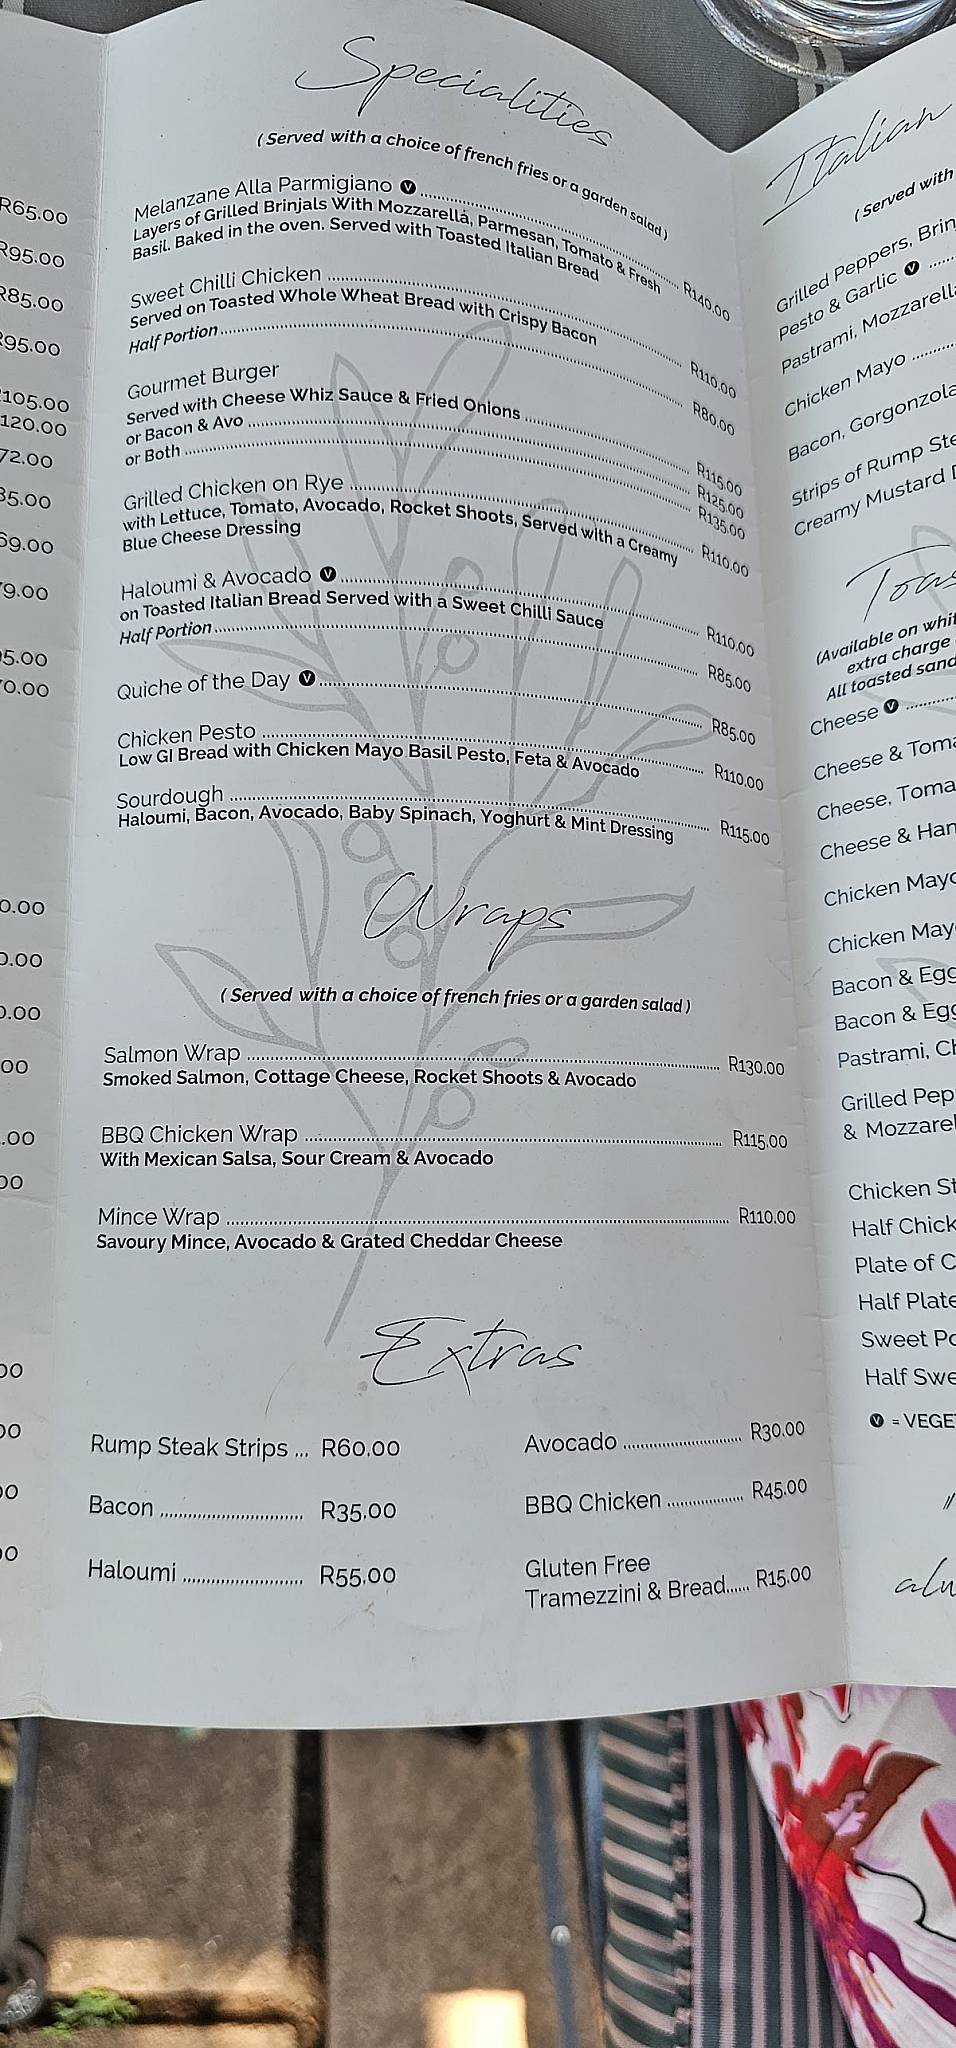 R65.00
R95.00
R85.00
R95.00
R105.00
R120.00
R72.00
Specialities
( Served with a choice of french fries or a garden salad )
Melanzane Alla Parmigiano V R140.00
Layers of Grilled Brinjals With Mozzarella, Parmesan, Tomato & Fresh
Basil. Baked in the oven. Served with Toasted Italian Bread
Sweet Chilli Chicken R110.00
Served on Toasted Whole Wheat Bread with Crispy Bacon
Half Portion R80.00
Gourmet Burger
Served with Cheese Whiz Sauce & Fried Onions R115.00
or Bacon & Avo R125.00
or Both R135.00
Grilled Chicken on Rye R110.00
with Lettuce, Tomato, Avocado, Rocket Shoots, Served with a Creamy
Blue Cheese Dressing
Haloumi & Avocado V R110.00
on Toasted Italian Bread Served with a Sweet Chilli Sauce
Half Portion R85.00
Quiche of the Day V R85.00
Chicken Pesto R110.00
Low GI Bread with Chicken Mayo Basil Pesto, Feta & Avocado
Sourdough R115.00
Haloumi, Bacon, Avocado, Baby Spinach, Yoghurt & Mint Dressing
Wraps
( Served with a choice of french fries or a garden salad )
Salmon Wrap R130.00
Smoked Salmon, Cottage Cheese, Rocket Shoots & Avocado
BBQ Chicken Wrap R115.00
With Mexican Salsa, Sour Cream & Avocado
Mince Wrap R110.00
Savoury Mince, Avocado & Grated Cheddar Cheese
Extras
Rump Steak Strips ... R60.00
Bacon R35.00
Haloumi R55.00
Avocado R30.00
BBQ Chicken R45.00
Gluten Free
Tramezzini & Bread R15.00
Italian
( Served with
Grilled Peppers,
Pesto & Garlic V
Pastrami,
Chicken Mayo
Bacon, Gorgonzola
Strips of Rump
Creamy Mustard
(Available on
extra charge
All toasted
Cheese V
Cheese &
Cheese,
Cheese &
Chicken
Chicken
Bacon &
Bacon &
Pastrami,
Grilled
&
Chicken
Half
Plate of
Half
Sweet
Half
V =